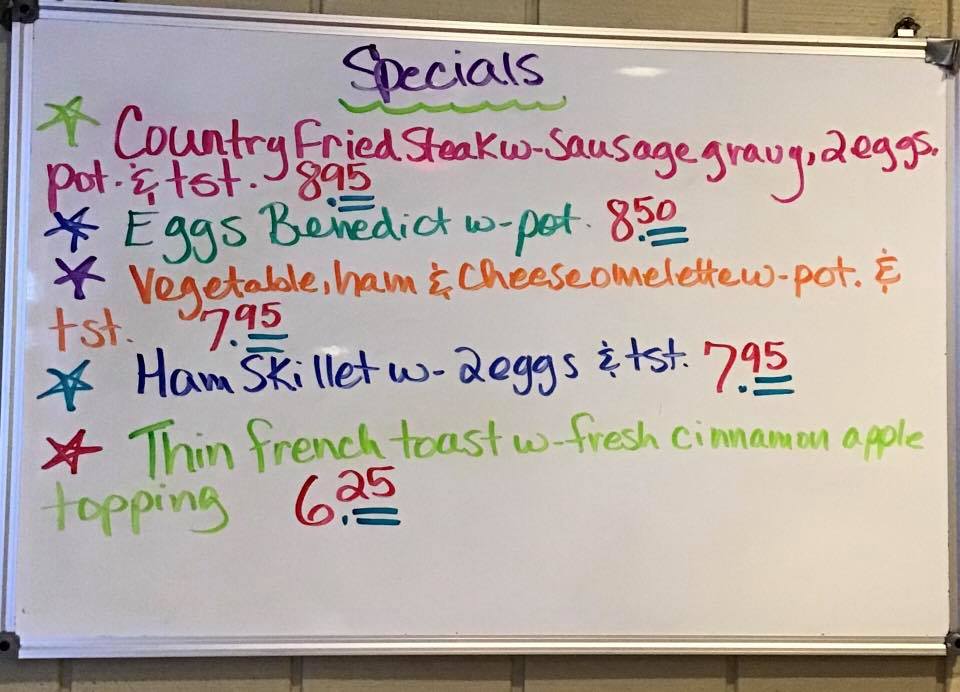 Specials
Country Fried Steak w- Sausage gravy, 2 eggs.
pot. & tst. 8.95
Eggs Benedict w- pot. 8.50
Vegetable, ham & Cheese omelette w- pot. &
tst. 7.95
Ham Skillet w- 2 eggs & tst. 7.95
Thin french toast w- fresh cinnamon apple
topping 6.25